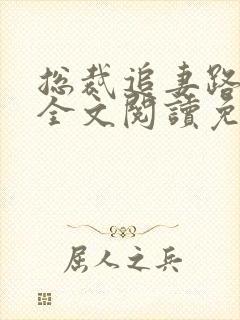 总裁追妻路
全文閱讀免
屈人之兵